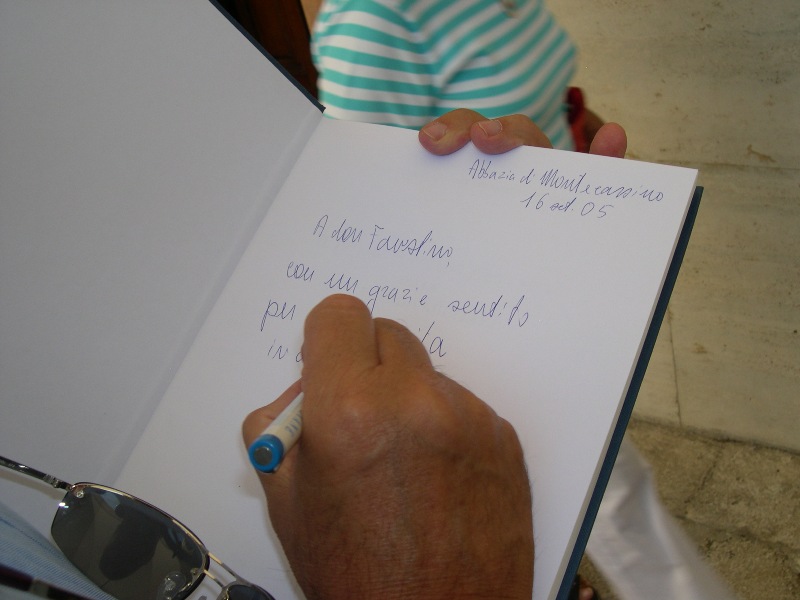 Abbazia di Montecassino
16 set. 05
A don Faustino,
con un grazie sentito
per
in